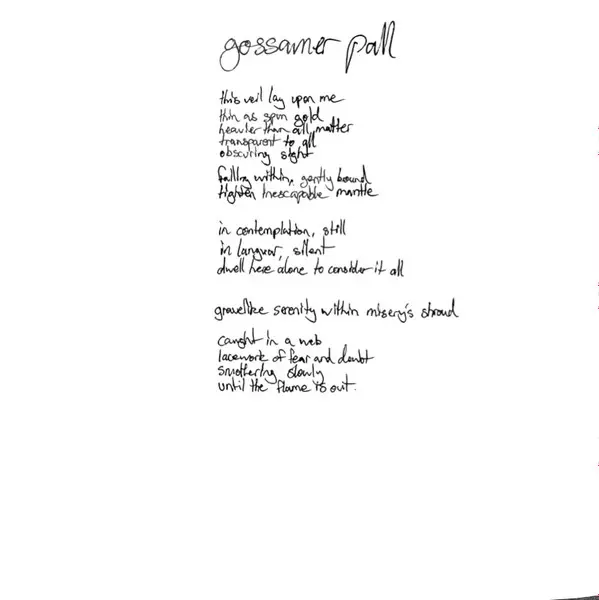 gossamer pall
this veil lay upon me
thin as spun gold
heavier than all matter
transparent to all
obscuring sight
falling within, gently bound
tighten inescapable mantle
in contemplation, still
in languor, silent
dwell here alone to consider it all
gravelike serenity within misery's shroud
caught in a web
lacework of fear and doubt
smothering slowly
until the flame is out.